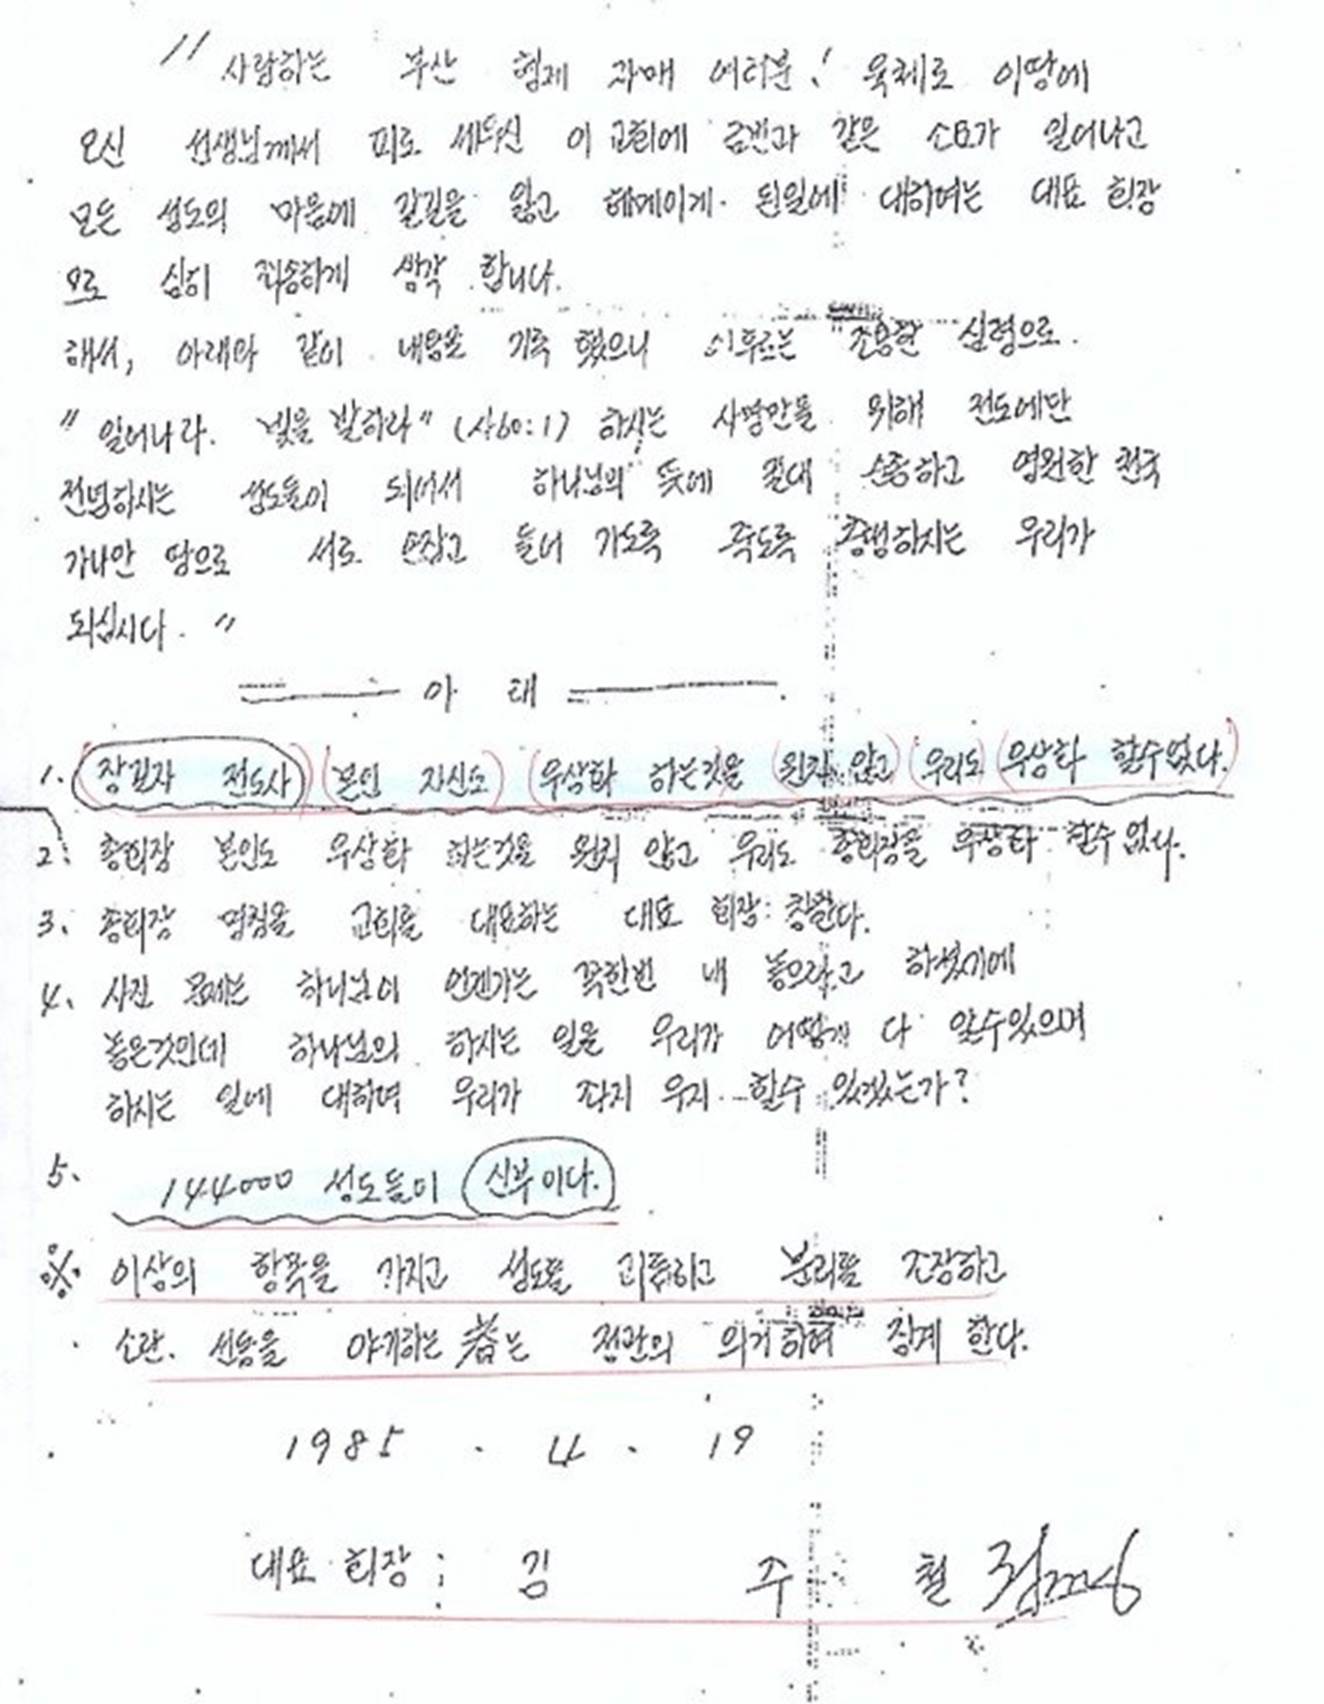 " 사랑하는 부산 형제 자매 여러분! 육체로 이땅에
오신 선생님께서 피로 세우신 이 교회에 금번과 같은 소요가 일어나고
모든 성도의 마음에 갈길을 잃고 헤메이게 된일에 대하여는 대표 회장
으로 심히 죄송하게 생각 합니다.
해서, 아래와 같이 내용을 기록 했으니 이후로는 조용한 심령으로.
" 일어나라. 빛을 발하라" (사60:1) 하시는 사명만을 위해 전도에만
전념하시는 성도들이 되어서 하나님의 뜻에 절대 순종하고 영원한 천국
가나안 땅으로 서로 손잡고 들어 가도록 죽도록 충성하시는 우리가
되십시다. "
아 래
1. 장길자 전도사 (본인 자신도) (우상화 하는것을 (원치 않고) (우리도) (우상화 할수없다.)
2. 총회장 본인도 우상화 하는것을 원치 않고 우리도 총회장을 우상화 할수 없다.
3. 총회장 명칭을 교회를 대표하는 대표 회장: 칭한다.
4. 사진 문제는 하나님이 언젠가는 꼭한번 내 놓으라고 하셨기에
놓은것인데 하나님의 하시는 일을 우리가 어떻게 다 알수있으며
하시는 일에 대하여 우리가 좌지 우지 할수 있겠는가?
5. 144000 성도들이 신부이다.
※ 이상의 항목을 가지고 성도를 괴롭히고 분리를 조장하고
소란. 선동을 야기하는 者는 정관의 의거하여 징계 한다.
1985 . 4 . 19
대표 회장 : 김 주 철